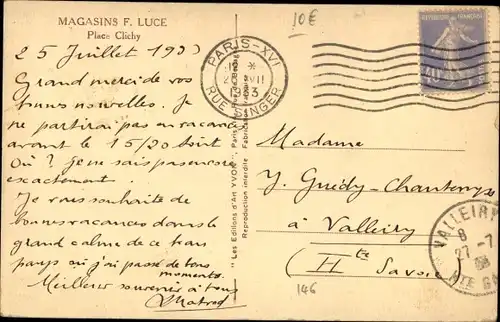 MAGASINS F. LUCE
Place Clichy
10E
25 Juillet 1933
Grand merci de vos
bonnes nouvelles. Je
ne partirai pas en vacances
avant le 15/20 Août
Où ? je ne sais pas encore
exactement.
Je vous souhaite de
bonnes vacances dans le
grand calme de ce beau
pays où j'ai passé de bons
moments.
Meilleur souvenir à tous
PARIS-XVI
RUE SINGER
REPUBLIQUE FRANÇAISE
40c
"Les Editions d'Art YVON", Paris
Reproduction interdite
Madame
Y. Guédy-Chantemps
à Valleiry
(Hte Savoie)
VALLEIRY
27-7
146